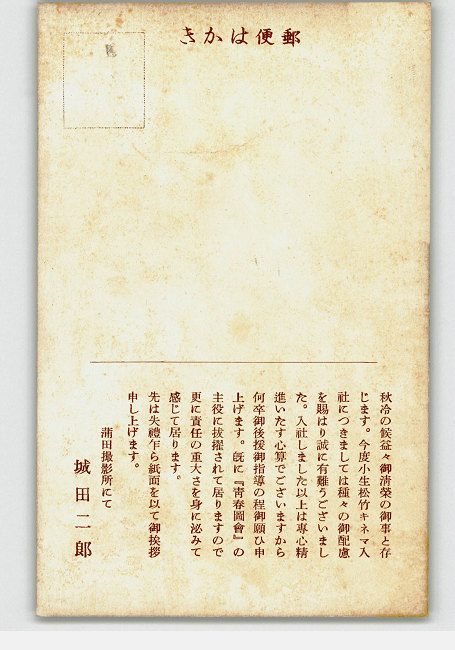 郵便はかき
秋冷の候益々御淸榮の御事と存
じます。今度小生松竹キネマ入
社につきましては種々の御配慮
を賜はり誠に有難うございまし
た。入社しました以上は專心精
進いたす心算でございますから
何卒御後援御指導の程御願ひ申
上げます。旣に『靑春圖會』の
主役に拔擢されて居りますので
更に責任の重大さを身に泌みて
感じて居ります。
先は失禮乍ら紙面を以て御挨拶
申し上げます。
蒲田撮影所にて
城田二郎